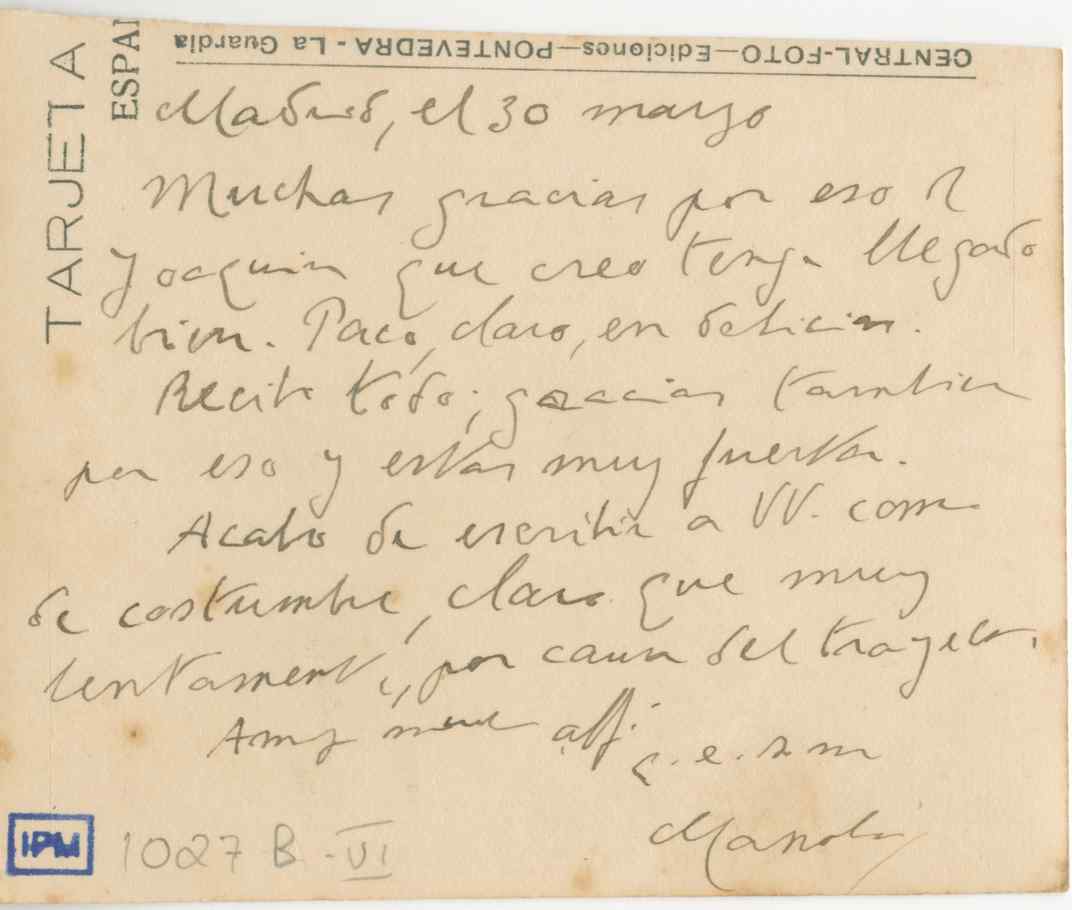 CENTRAL-FOTO—Ediciones—PONTEVEDRA - La Guardia
TARJETA
ESPAÑ
Madrid, el 30 marzo
Muchas gracias por eso
Joaquin que creo tenga llegado
bien. Paco, claro, en delicias.
Recibo todo; gracias tambien
por eso y estas muy fuertes.
Acabo de escribir a VV. como
de costumbre, claro que muy
lentamente, por causa del trayecto.
affº q. e. s. m
Manolo
IPM
1027 B - VI